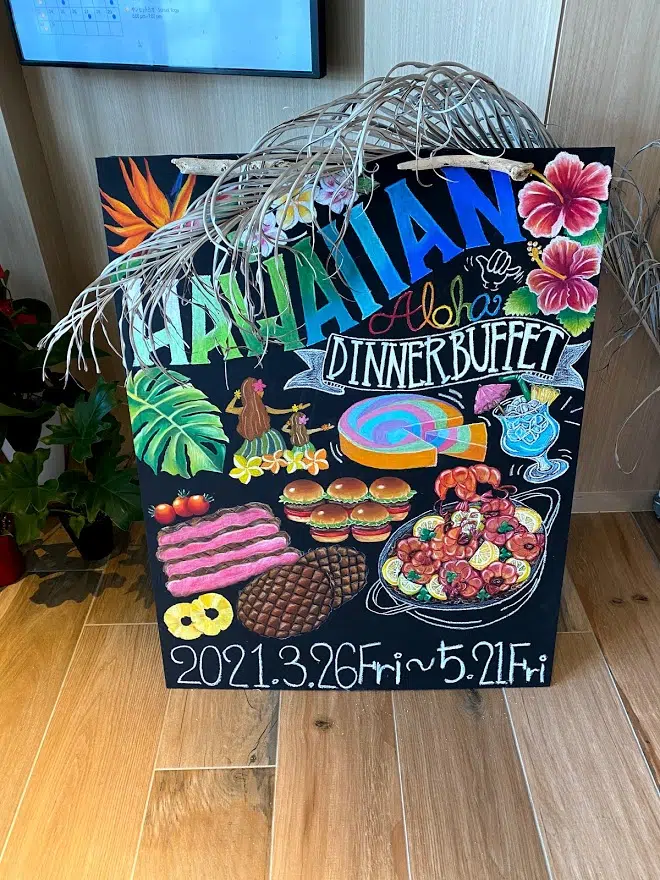 HAWAIIAN
Aloha
DINNER BUFFET
2021.3.26Fri~5.21Fri